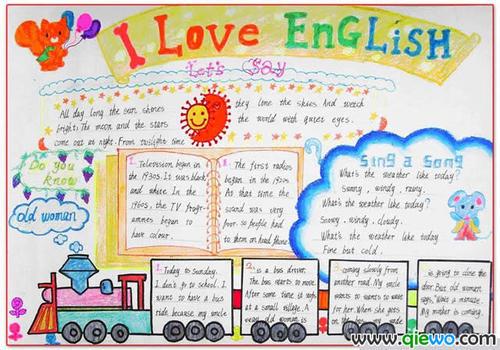 I Love EnGLisH
Let's Say
All day long the sun shines
bright. The moon and the stars
come out at night. From twilight time
they line the skies And watch
the world with quiet eyes.
Do you
know
old woman
1. Television began in
the 1930s. It was black
and white. In the
1960s, the TV progr-
ammes began to
have colour.
The first radios
began in the 1920s
At that time the
sound was very
poor. so people had
to them on head phone
Sing a Song
What's the weather like today?
Sunny, windy, rainy.
What's the weather like today?
Snowy. windy. cloudy
What's the weather like today
Fine but cold.
1. Today to sunday.
I don't go to school. I
wants to have a bus
ride, because my uncle
2. is a bus driver.
The bus starts to move.
After some time it stops
at a small village. A
old woman is
coming slowly from
another road. My uncle
wants to wants to wait
for her. When she goes
on the bus, my uncle
is going to close the
door. But old women
says. "Wait a minute.
My mother is coming.
www.qiewo.com